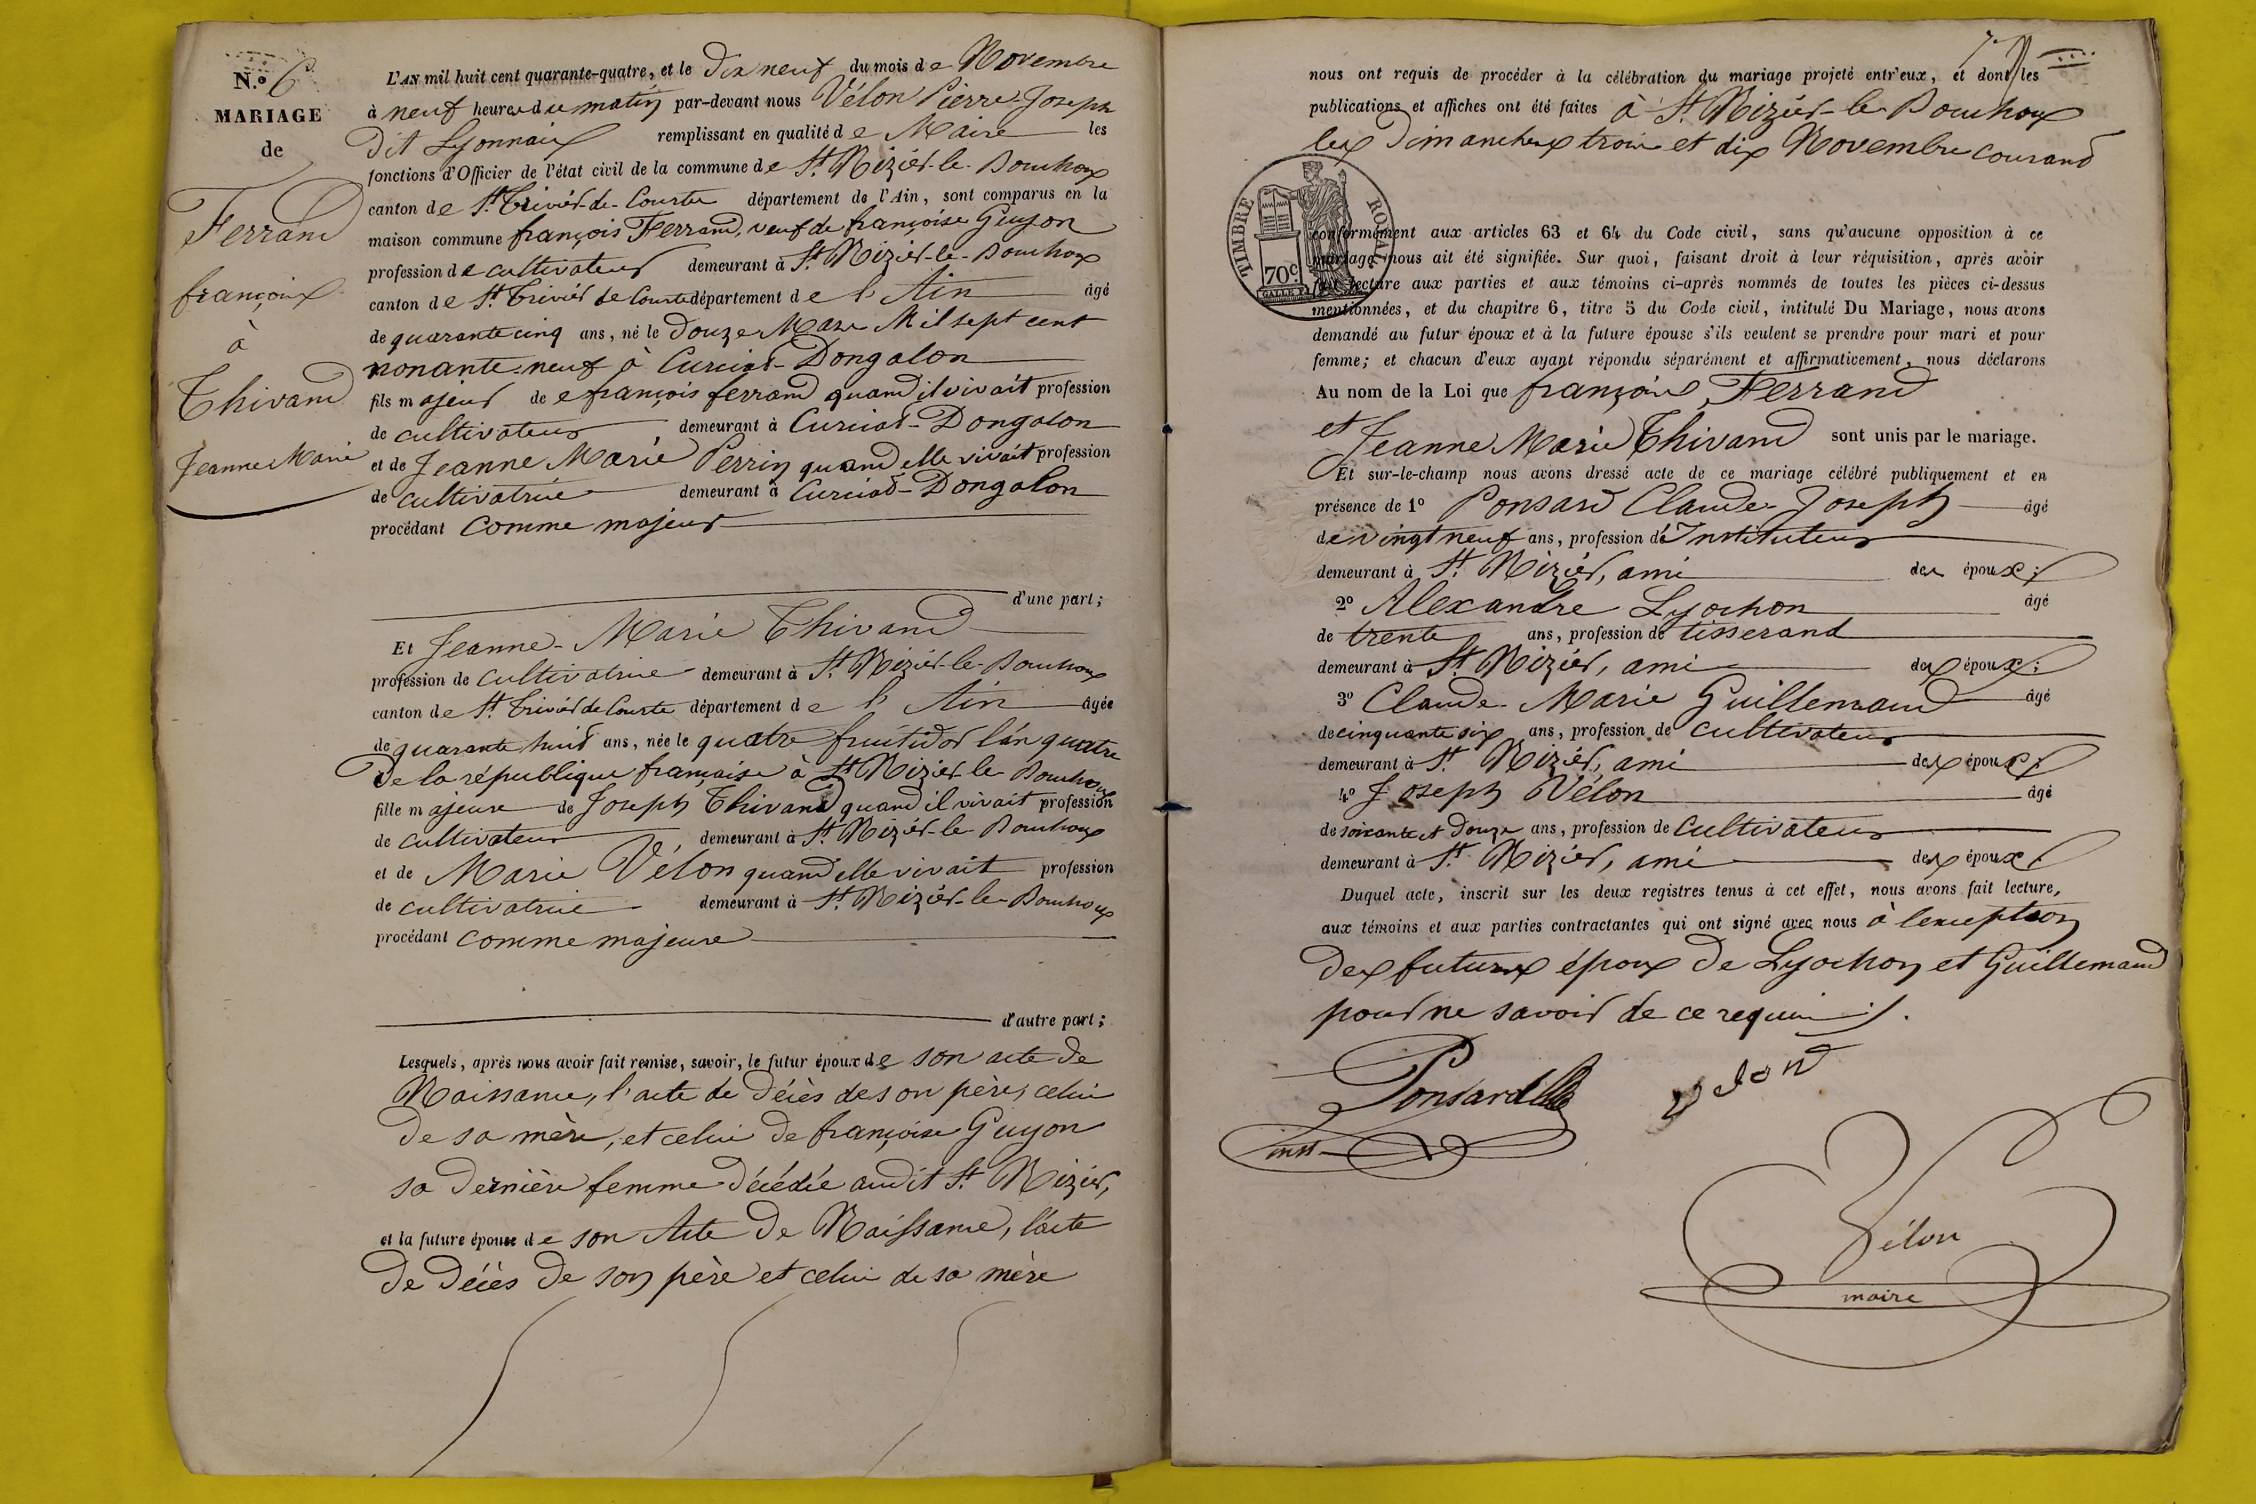 N.o 6
MARIAGE
de
Ferrand
françois
à
Thivand
Jeanne Marie
L'AN mil huit cent quarante-quatre, et le dix neuf du mois de Novembre
à neuf heures du matin par-devant nous Vélon Pierre-Joseph
dit Lyonnais remplissant en qualité de Maire les
fonctions d'Officier de l'état civil de la commune de St. Nizier-le-Bouchoux
canton de St. Trivier-de-Courtes département de l'Ain, sont comparus en la
maison commune françois Ferrand, veuf de françoise Guyon
profession de cultivateur demeurant à St. Nizier-le-Bouchoux
canton de St. Trivier de Courtes département de l'Ain âgé
de quarante cinq ans, né le douze Mars Mil sept cent
nonante-neuf à Curciat-Dongalon
fils majeur de françois ferrand quand il vivait profession
de cultivateur demeurant à Curciat-Dongalon
et de Jeanne Marie Perrin quand elle vivait profession
de cultivatrice demeurant à Curciat-Dongalon
procédant comme majeur
d'une part;
Et Jeanne-Marie Thivand
profession de cultivatrice demeurant à St. Nizier-le-Bouchoux
canton de St. Trivier de Courtes département de l'Ain âgée
de quarante huit ans, née le quatre fructidor l'an quatre
de la république française à St Nizier le Bouchoux
fille majeure de Joseph Thivand quand il vivait profession
de cultivateur demeurant à St. Nizier-le-Bouchoux
et de Marie Vélon quand elle vivait profession
de cultivatrice demeurant à St. Nizier-le-Bouchoux
procédant comme majeure
d'autre part;
Lesquels, après nous avoir fait remise, savoir, le futur époux de son acte de
Naissance, l'acte de décès de son père, celui
de sa mère, et celui de françoise Guyon
sa dernière femme décédée audit St. Nizier,
et la future épouse de son Acte de Naissance, l'acte
de décès de son père et celui de sa mère
nous ont requis de procéder à la célébration du mariage projeté entr'eux, et dont les
publications et affiches ont été faites à St. Nizier-le-Bouchoux
les Dimanches trois et dix Novembre courand
TIMBRE ROYAL
70c
conformément aux articles 63 et 64 du Code civil, sans qu'aucune opposition à ce
mariage nous ait été signifiée. Sur quoi, faisant droit à leur réquisition, après avoir
fait lecture aux parties et aux témoins ci-après nommés de toutes les pièces ci-dessus
mentionnées, et du chapitre 6, titre 5 du Code civil, intitulé Du Mariage, nous avons
demandé au futur époux et à la future épouse s'ils veulent se prendre pour mari et pour
femme; et chacun d'eux ayant répondu séparément et affirmativement, nous déclarons
Au nom de la Loi que françois Ferrand
et Jeanne Marie Thivand sont unis par le mariage.
Et sur-le-champ nous avons dressé acte de ce mariage célébré publiquement et en
présence de 1o Ponsard Claude-Joseph âgé
de vingt neuf ans, profession d'Instituteur
demeurant à St. Nizier, ami des époux;
2o Alexandre Lyochon âgé
de trente ans, profession de tisserand
demeurant à St Nizier, ami des époux;
3o Claude-Marie Guillemaud âgé
de cinquante six ans, profession de cultivateur
demeurant à St. Nizier, ami des époux;
4o Joseph Vélon âgé
de soixante et douze ans, profession de cultivateur
demeurant à St. Nizier, ami des époux.
Duquel acte, inscrit sur les deux registres tenus à cet effet, nous avons fait lecture,
aux témoins et aux parties contractantes qui ont signé avec nous à l'exception
des futurs époux de Lyochon et Guillemaud
pour ne savoir de ce requis.
Ponsard
inst
velon
Vélon
maire